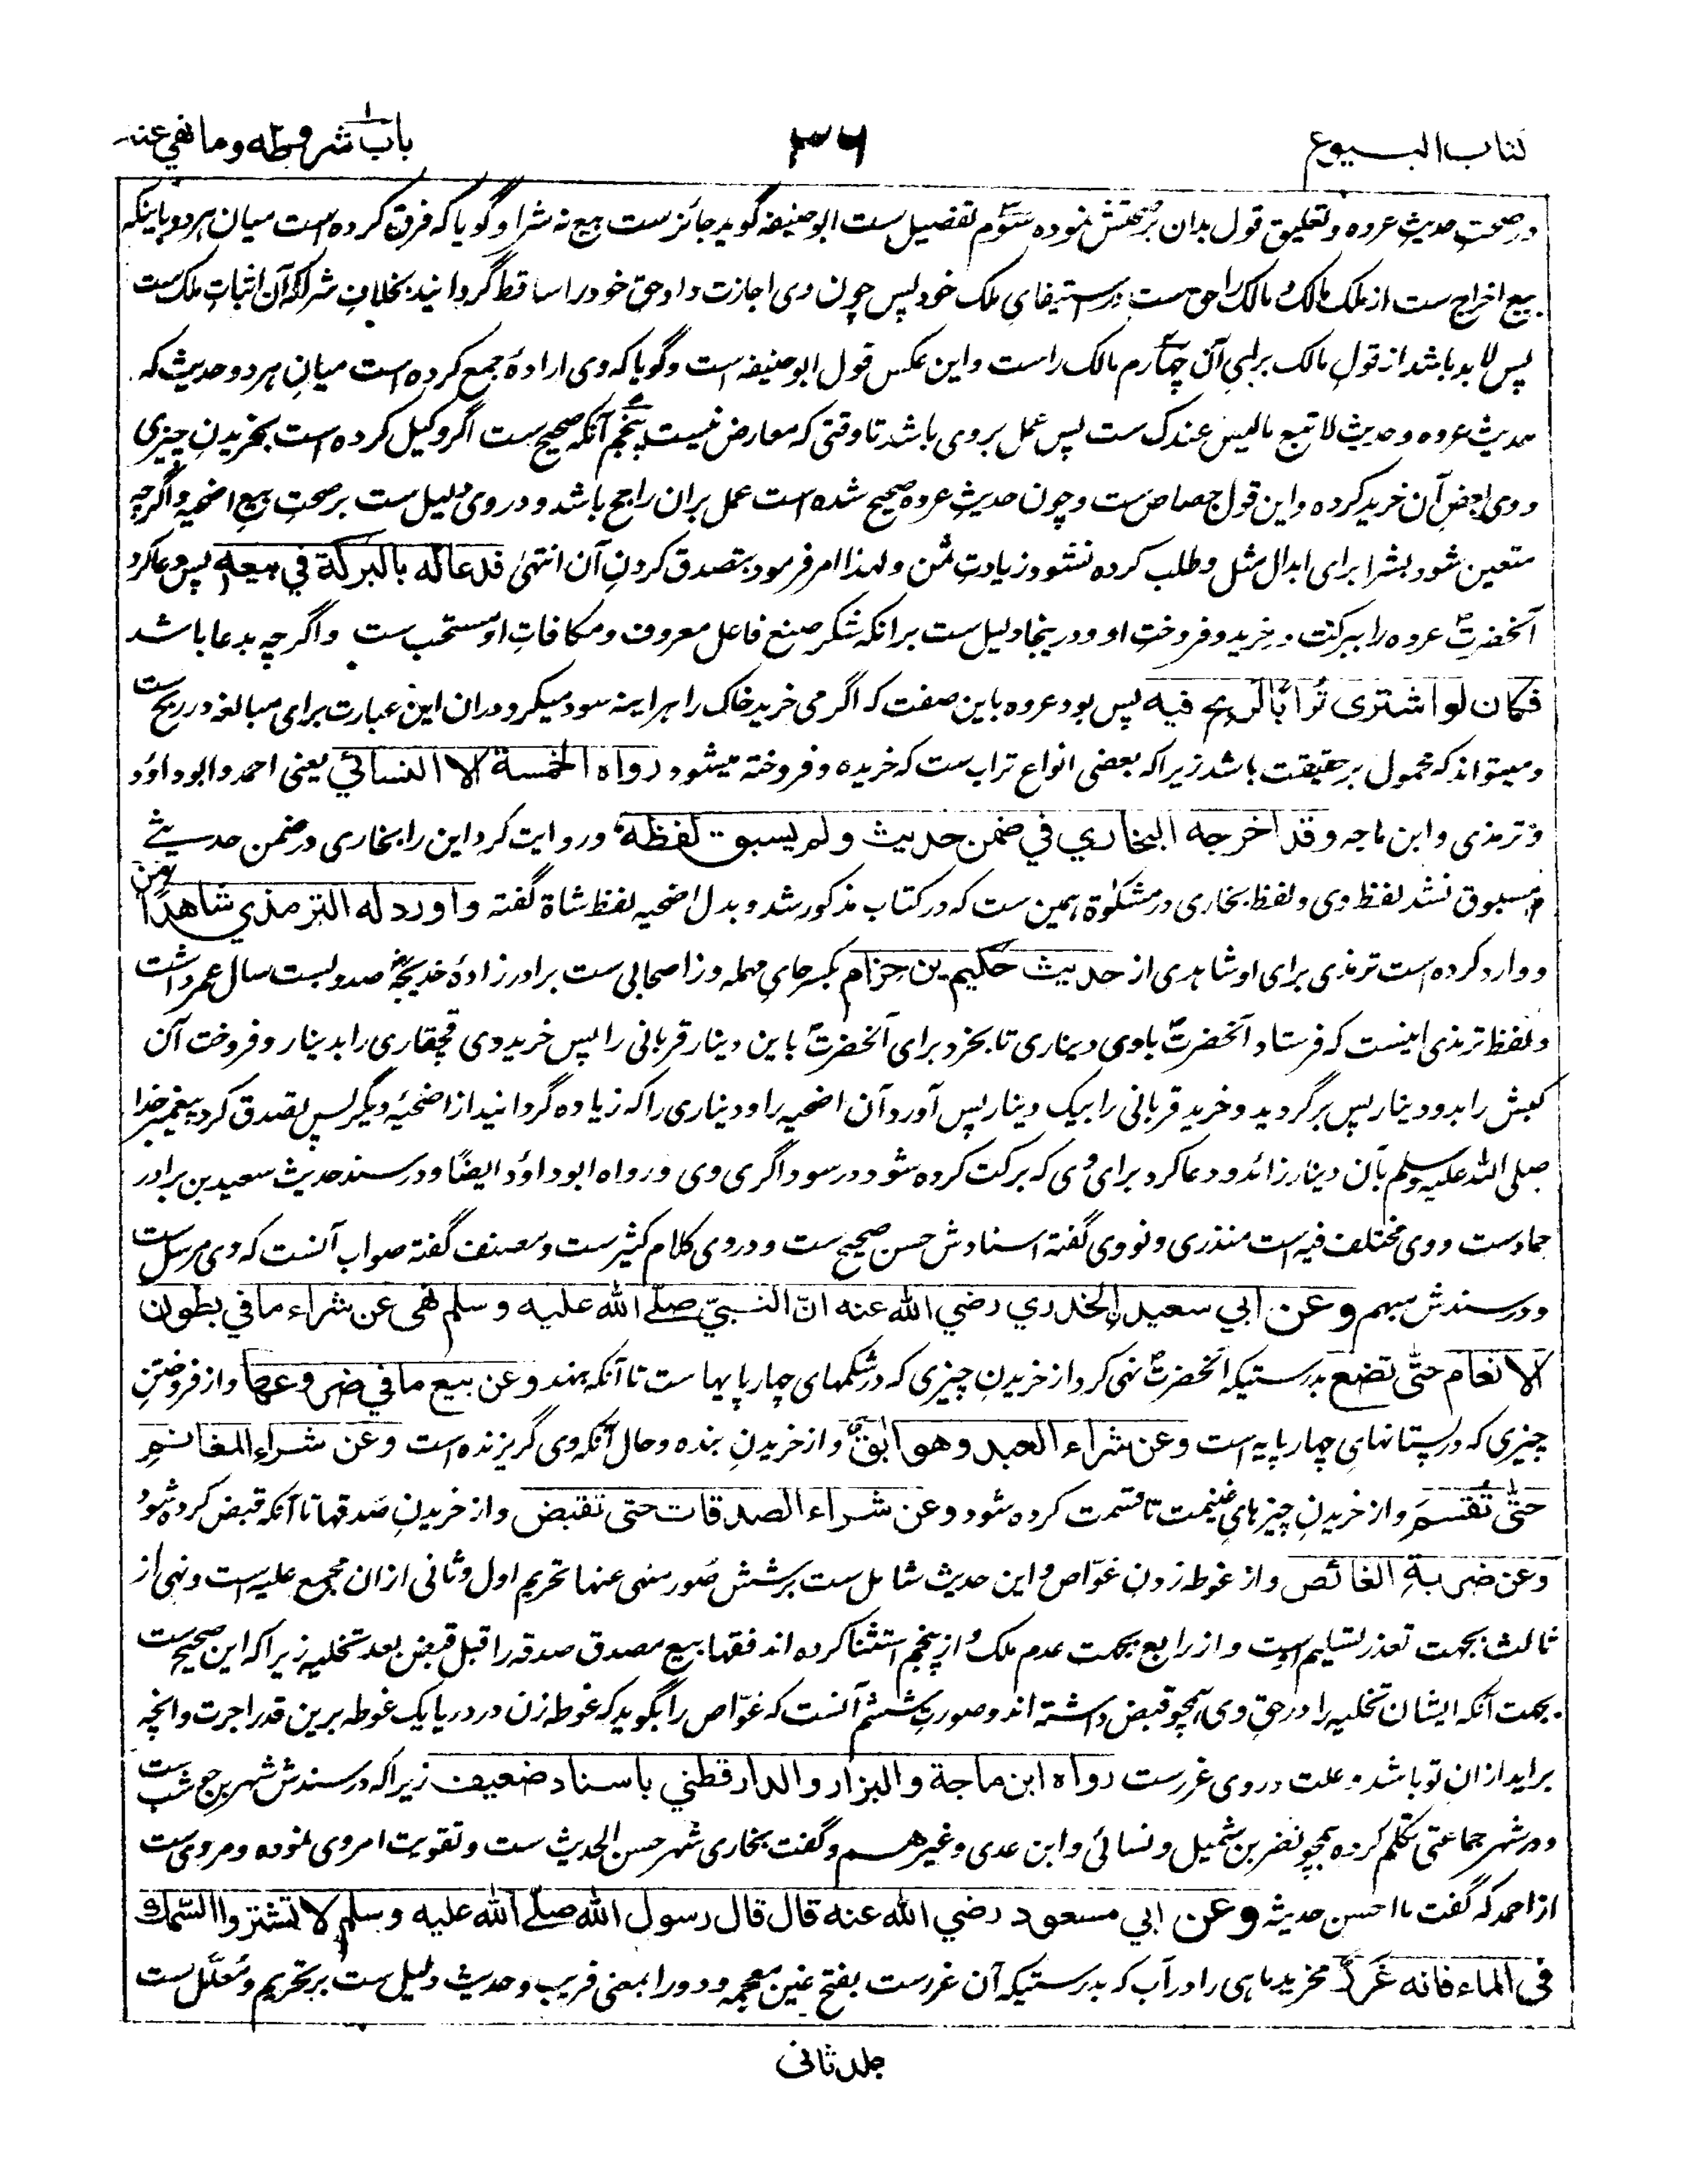 کتاب البیوع
۳۶
باب شروطه وما نهي عنه
در صحت حدیث عروه و تعلیق قول بدان بر صحتش نموده سوم تفصیل ست ابو حنیفه گوید جائز ست بیع نه شرا و گویا که فرق کرده است میان هر دو باینکه
بیع اخراج ست از ملک مالک و مالک را حق ست در استیفای ملک خود پس چون وی اجازت داد حق خود را ساقط گردانید بخلاف شرا که آن اثبات ملک ست
پس لا بد باشد از قول مالک برای آن چهارم مالک راست و این عکس قول ابو حنیفه است و گویا که وی ارادهٔ جمع کرده است میان هر دو حدیث که
حدیث عروه و حدیث لا تبع ما لیس عندک ست پس عمل بروی باشد تا وقتی که معارض نیست پنجم آنکه صحیح ست اگر وکیل کرده است بخریدن چیزی
و وی بعض آن خرید کرده و این قول جصاص ست و چون حدیث عروه صحیح شده است عمل بران راجح باشد و در وی دلیل ست بر صحت بیع اضحیه و اگرچه
متعین شود بشرا برای ابدال مثل و طلب کرده نشود زیادت ثمن و لهذا امر فرمود بتصدق کردن آن انتهیٰ فدعا له بالبركة في بيعه پس دعا کرد
آنحضرتؐ عروه را ببرکت در خرید و فروخت او و درینجا دلیل ست برانکه شکر صنع فاعل معروف و مکافات او مستحب ست و اگرچه بدعا باشد
فكان لو اشترى تُرابًا لربح فيه پس بود عروه باین صفت که اگر می خرید خاک را هر اینه سود میکرد دران این عبارت برای مبالغه در ربح ست
و میتواند که محمول بر حقیقت باشد زیرا که بعضی انواع تراب ست که خریده و فروخته میشود رواه الخمسة الا النسائي یعنی احمد و ابو داوٗد
و ترمذی و ابن ماجه وقد اخرجه البخاري في ضمن حديث ولم يسبق لفظه و روایت کرد این را بخاری در ضمن حدیثے
و مسبوق نشد لفظ وی و لفظ بخاری در مشکوٰة همین ست که در کتاب مذکور شد و بدل اضحیه لفظ شاة گفته واورد له الترمذي شاهدًا من
و وارد کرده است ترمذی برای او شاهدی از حديث حكيم بن حِزام بکسر حای مهمله و زا صحابی ست برادر زادهٔ خدیجهؓ صد و بست سال عمر داشت
و لفظ ترمذی اینست که فرستاد آنحضرتؐ با وی دیناری تا بخرد برای آنحضرتؐ باین دینار قربانی را پس خرید وی قچقاری را بدینار و فروخت آن
کبش را بدو دینار پس برگردید و خرید قربانی را بیک دینار پس آورد آن اضحیه را و دیناری را که زیاده گردانید از اضحیهٔ دیگر پس تصدق کرد پیغمبر خدا
صلی الله علیه وسلم بآن دینار زائد و دعا کرد برای وی که برکت کرده شود در سوداگری وی و رواه ابو داوٗد ایضًا و در سند حدیث سعید بن برادر
حماد ست و وی مختلف فیه است منذری و نووی گفته اسنادش حسن صحیح ست و در وی کلام کثیر ست و مصنف گفته صواب آنست که وی مرسل ست
و در سندش مبهم وعن ابي سعيد الخدري رضي الله عنه انّ النبيّ صلّے الله عليه وسلم نهى عن شراء ما في بطون
الانعام حتّى تضع بدرستیکه آنحضرتؐ نهی کرد از خریدن چیزی که در شکمهای چارپایها ست تا آنکه بنهند وعن بيع ما في ضروعها و از فروختن
چیزی که در پستانهای چهارپایه است وعن شراء العبد وهو ابق و از خریدن بنده و حال آنکه وی گریزنده است وعن شراء المغانم
حتّى تُقسَم و از خریدن چیزهای غنیمت تا قسمت کرده شود وعن شراء الصدقات حتى تقبض و از خریدن صدقها تا آنکه قبض کرده شود
وعن ضربةِ الغائص و از غوطه زدن غوّاص و این حدیث شامل ست بر شش صُوَر منهی عنها تحریم اول و ثانی ازان مجمع علیه است و نهی از
ثالث بجهت تعذر تسلیم است و از رابع بجهت عدم ملک و از پنجم استثنا کرده اند فقها بیع مصدق صدقه را قبل قبض بعد تخلیه زیرا که این صحیح ست
بجهت آنکه ایشان تخلیه را در حق وی همچو قبض داشته اند و صورت ششم آنست که غوّاص را بگوید که غوطه زن در دریا یک غوطه برین قدر اجرت و انچه
براید ازان تو باشد و علت در وی غرر ست رواه ابن ماجة والبزار والدارقطني باسناد ضعيف زیرا که در سندش شهر بن حوشب ست
و در شهر جماعتی تکلم کرده همچو نضر بن شمیل و نسائی و ابن عدی و غیرهم و گفت بخاری شهر حسن الحدیث ست و تقویت امر وی نموده و مروی ست
از احمد که گفت ما احسن حدیثه وعن ابي مسعود رضي الله عنه قال قال رسول الله صلّے الله عليه وسلم لا تشتروا السّمك
في الماء فانه غَرَرٌ مخرید ماهی را در آب که بدرستیکه آن غرر ست بفتح غین معجمه و دو را بمعنی فریب و حدیث دلیل ست بر تحریم و معلّل ست
جلد ثانی